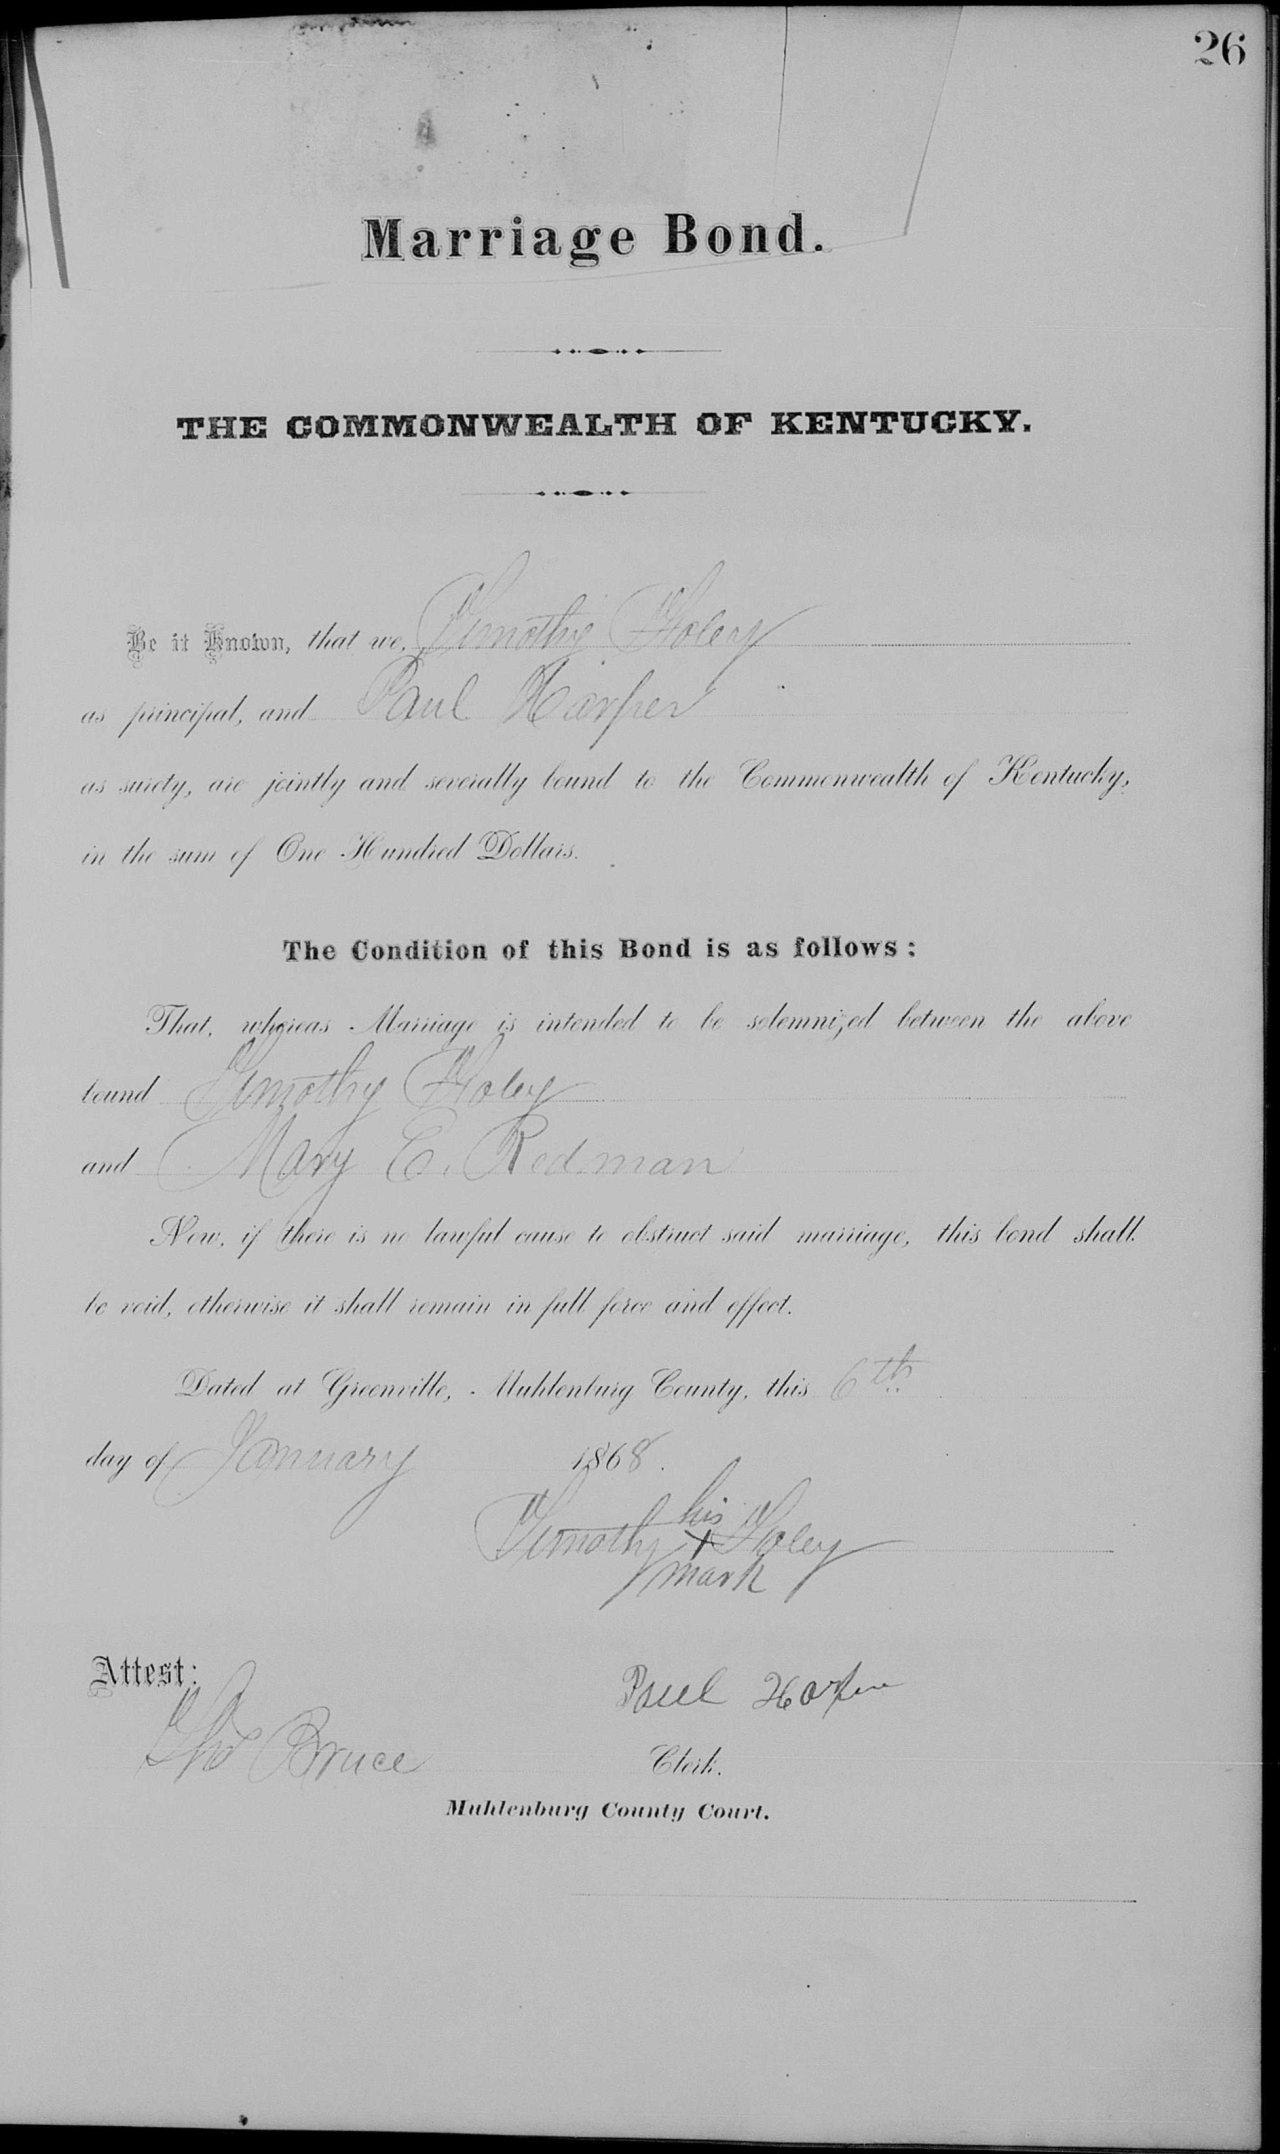 26
Marriage Bond.
THE COMMONWEALTH OF KENTUCKY.
Be it Known, that we, Timothy Foley
as principal, and Paul Harper
as surety, are jointly and severally bound to the Commonwealth of Kentucky,
in the sum of One Hundred Dollars.
The Condition of this Bond is as follows:
That, whereas Marriage is intended to be solemnized between the above
bound Timothy Foley
and Mary E. Redman
Now, if there is no lawful cause to obstruct said marriage, this bond shall
be void, otherwise it shall remain in full force and effect.
Dated at Greenville, Muhlenburg County, this 6th
day of January 1868.
his
Timothy X Foley
mark
Attest:
Paul Harper
Tho Bruce Clerk.
Muhlenburg County Court.